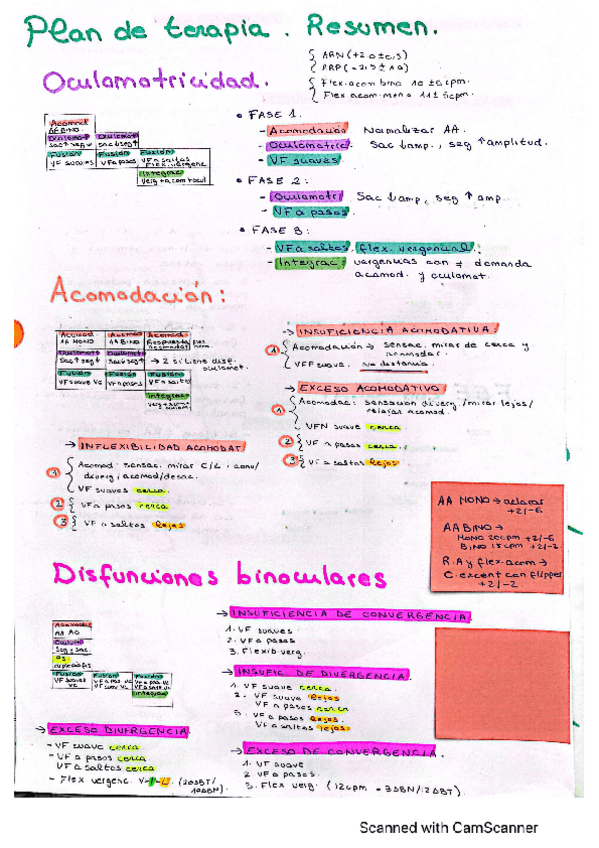 Plan de terapia. Resumen.
ARN (+2.0 ± 0.5)
Oculomotricidad.
Flex. acom bino 10 ± 5 cpm.
Flex acom. mono 11 ± 5 cpm.
• FASE 1.
- Acomodación Normalizar AA.
- Oculomotric. Sac ↓ amp., seg ↑ amplitud.
- VF suaves
• FASE 2:
- Oculomotri Sac ↓ amp, seg ↑ amp.
- VF a pasos.
• FASE 3:
- VF a saltos, flex. vergencial.
- Integrac: vergencias con ≠ demanda
acomod. y oculomot.
Acomod
AA BINO
Oculomot Oculomot
Fusión Fusión Fusión
VF suaves VF a pasos VF a saltos
Flex. vergenc
Integrac
Verg + acom + ocul
Acomodación:
Acomod Acomod Acomod
AA MONO AA BINO Respuesta
Oculomot Oculomot → 2 si tiene disf.
Sac↑ seg↑ Sac↓ seg↑ oculomot.
Fusión Fusión Fusión
VF suave VC VF a pasos VF a saltos
Integrac
→ INSUFICIENCIA ACOMODATIVA.
1 Acomodación → sensac. mirar de cerca y
VFP suave.
→ EXCESO ACOMODATIVO
1 Acomodac: sensación diverg./mirar lejos/
relajar acomod.
VFN suave cerca
2 VF a pasos cerca.
3 VF a saltos lejos
→ INFLEXIBILIDAD ACOMODAT.
1 Acomod: sensac. mirar C/L, conv/
diverg, acomod/desac.
VF suaves cerca.
2 VF a pasos cerca
3 VF a saltos lejos
AA MONO → aclarar
+2/-6
AA BINO →
MONO 20cpm +2/-6
BINO 15cpm +2/-2
R.A y flex. acom →
C. excent con flipper
+2/-2
Disfunciones binoculares
→ INSUFICIENCIA DE CONVERGENCIA.
1. VF suaves.
2. VF a pasos
3. Flexib. verg.
Acomod
AA AO
Oculom
Seg + sac.
Fusión Fusión Fusión
Integrac
→ INSUFIC. DE DIVERGENCIA.
1. VF suave cerca.
2. VF suave lejos
VF a pasos cerca
3. VF a pasos lejos.
VF a saltos lejos
→ EXCESO DIVERGENCIA
- VF suave cerca
- VF a pasos cerca
VF a saltos cerca
- Flex vergenc.
→ EXCESO DE CONVERGENCIA.
1. VF suave
2. VF a pasos.
3. Flex verg. (12cpm - 3ΔBN/12ΔBT).
Scanned with CamScanner